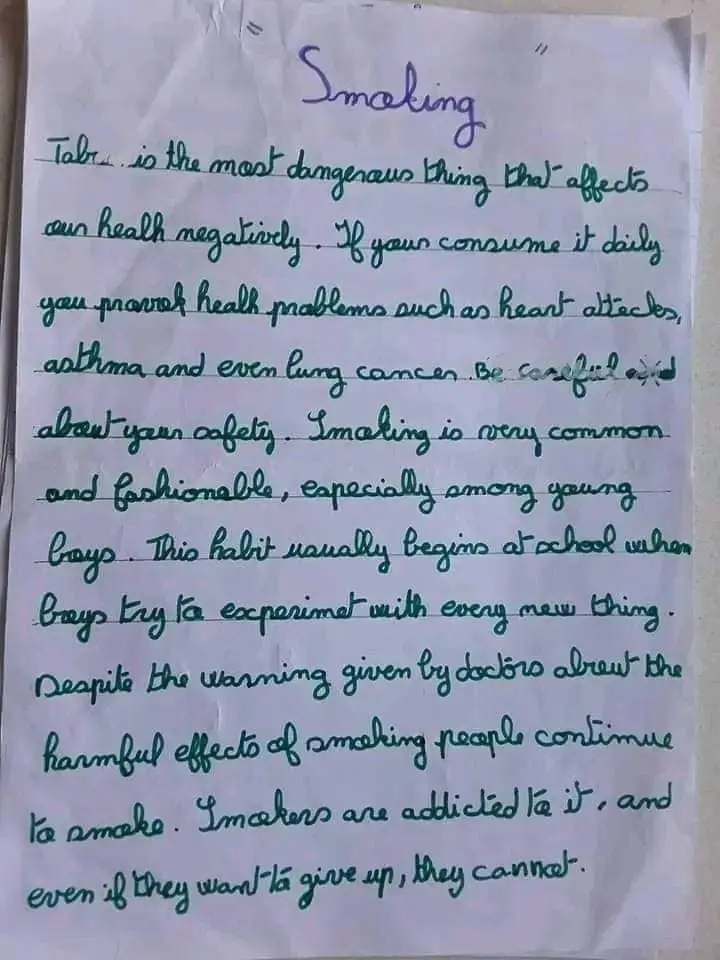 " Smoking "
is the most dangerous thing that affects
our healh negatively. If your consume it daily
you healh problems such as heart attacks,
asthma and even lung cancer. Be careful
about your safety. Smoking is very common
and fashionable, especially among young
boys. This habit usually begins at school when
boys try to experimet with every new thing.
Despite the warning given by doctors about the
harmful effects of smoking people continue
to smoke. Smokers are addicted to it, and
even if they want to give up, they cannot.